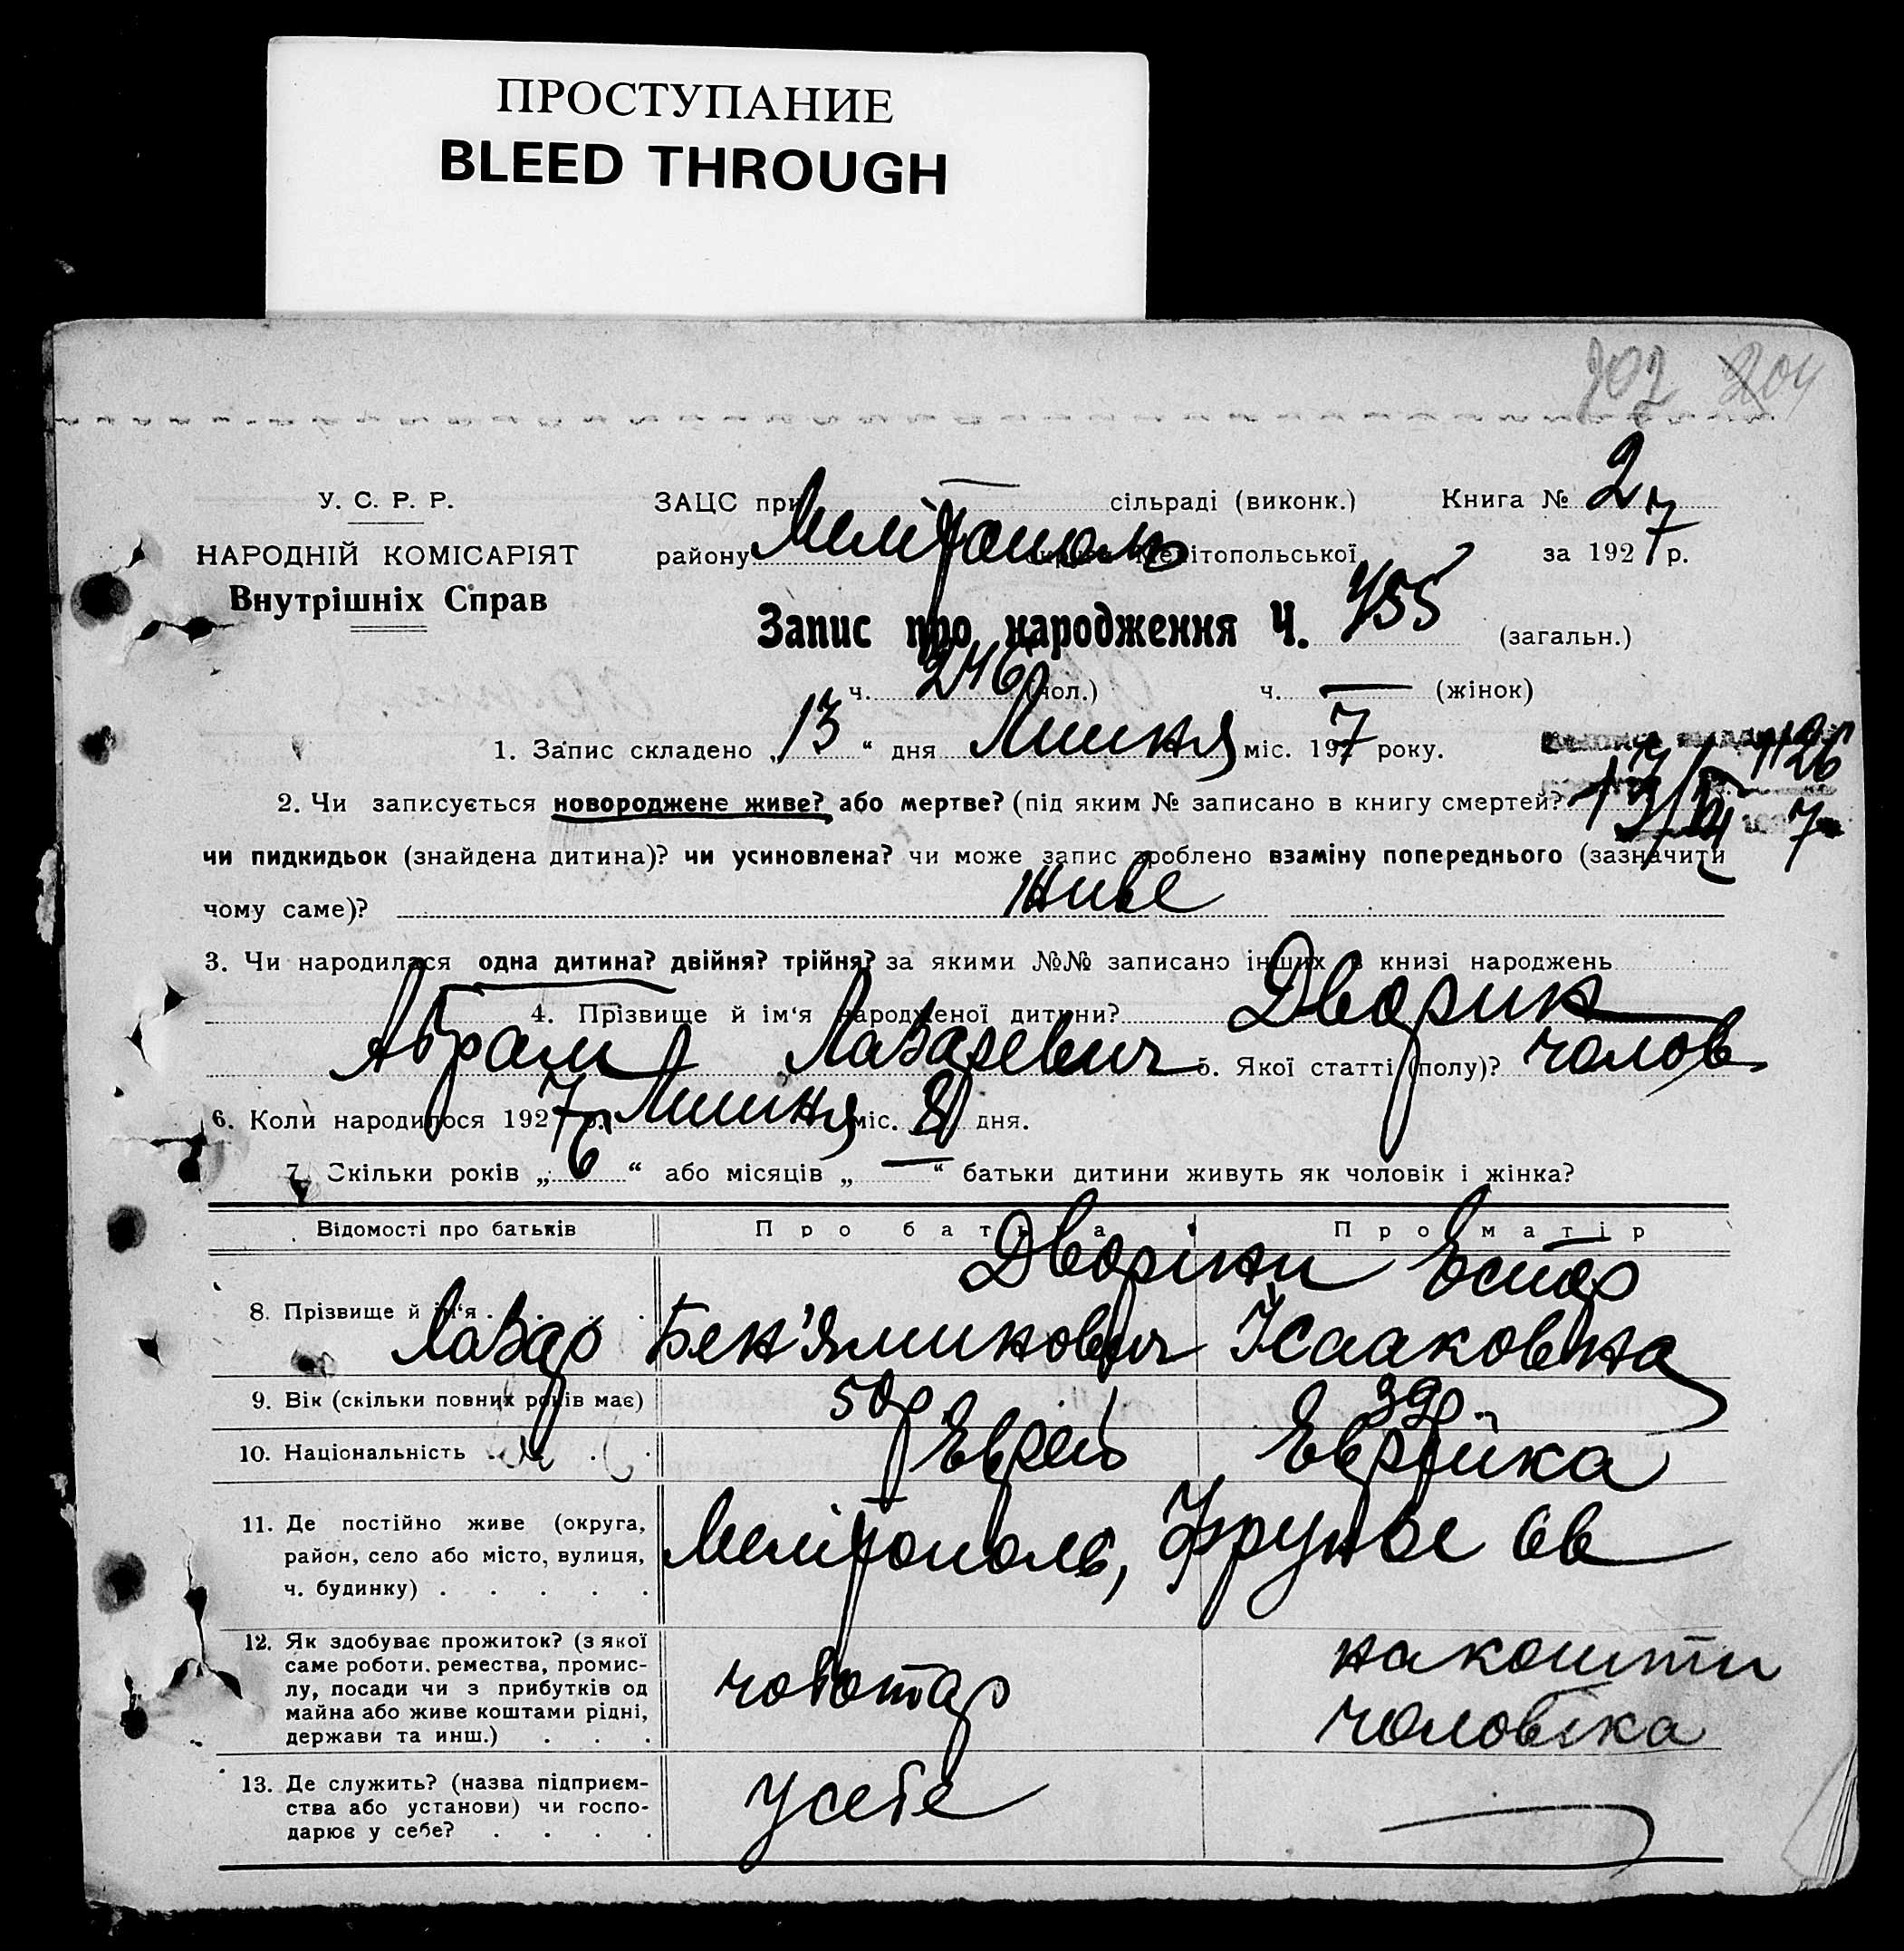 ПРОСТУПАНИЕ
BLEED THROUGH
202 204
У. С. Р. Р.
НАРОДНІЙ КОМІСАРІЯТ
Внутрішніх Справ
ЗАЦС при — сільраді (виконк.) Книга № 2
району Мелітополь округи Мелітопольської за 1927 р.
Запис про народження Ч. 455 (загальн.)
ч. 246 (чол.) ч. — (жінок)
1. Запис складено „ 13 “ дня Липня міс. 1927 року.
2. Чи записується новороджене живе? або мертве? (під яким № записано в книгу смертей?
чи пидкидьок (знайдена дитина)? чи усиновлена? чи може запис зроблено взаміну попереднього (зазначити
чому саме)? живе
3. Чи народилася одна дитина? двійня? трійня? за якими №№ записано інших в книзі народжень
4. Прізвище й ім'я народженої дитини? Дворин
Абрам Лазаревич 5. Якої статті (полу)? чолов
6. Коли народилося 1927 р. Липня міс. 8 дня.
7. Скільки років „ 6 “ або місяців „ — “ батьки дитини живуть як чоловік і жінка?
Відомості про батьків Про батька Про матір
Дворіни Естер
8. Прізвище й ім'я . . . . Лазар Бен'яминович Ісааковна
9. Вік (скільки повних років має) 50р. 39р.
10. Національність . . . Еврей Еврейка
11. Де постійно живе (округа,
район, село або місто, вулиця,
ч. будинку) . . . . .
Мелітополь, Фрунзе 66
12. Як здобуває прожиток? (з якої
саме роботи, ремества, промис-
лу, посади чи з прибутків од
майна або живе коштами рідні,
держави та инш.) . . .
чоботар
на кошти
чоловіка
13. Де служить? (назва підприєм-
ства або установи) чи госпо-
дарює у себе? . . . .
у себе